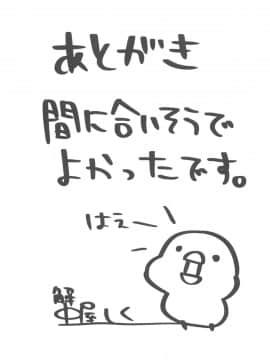 あとがき
間に合いそうで
よかったです。
はえー
蟹屋しく